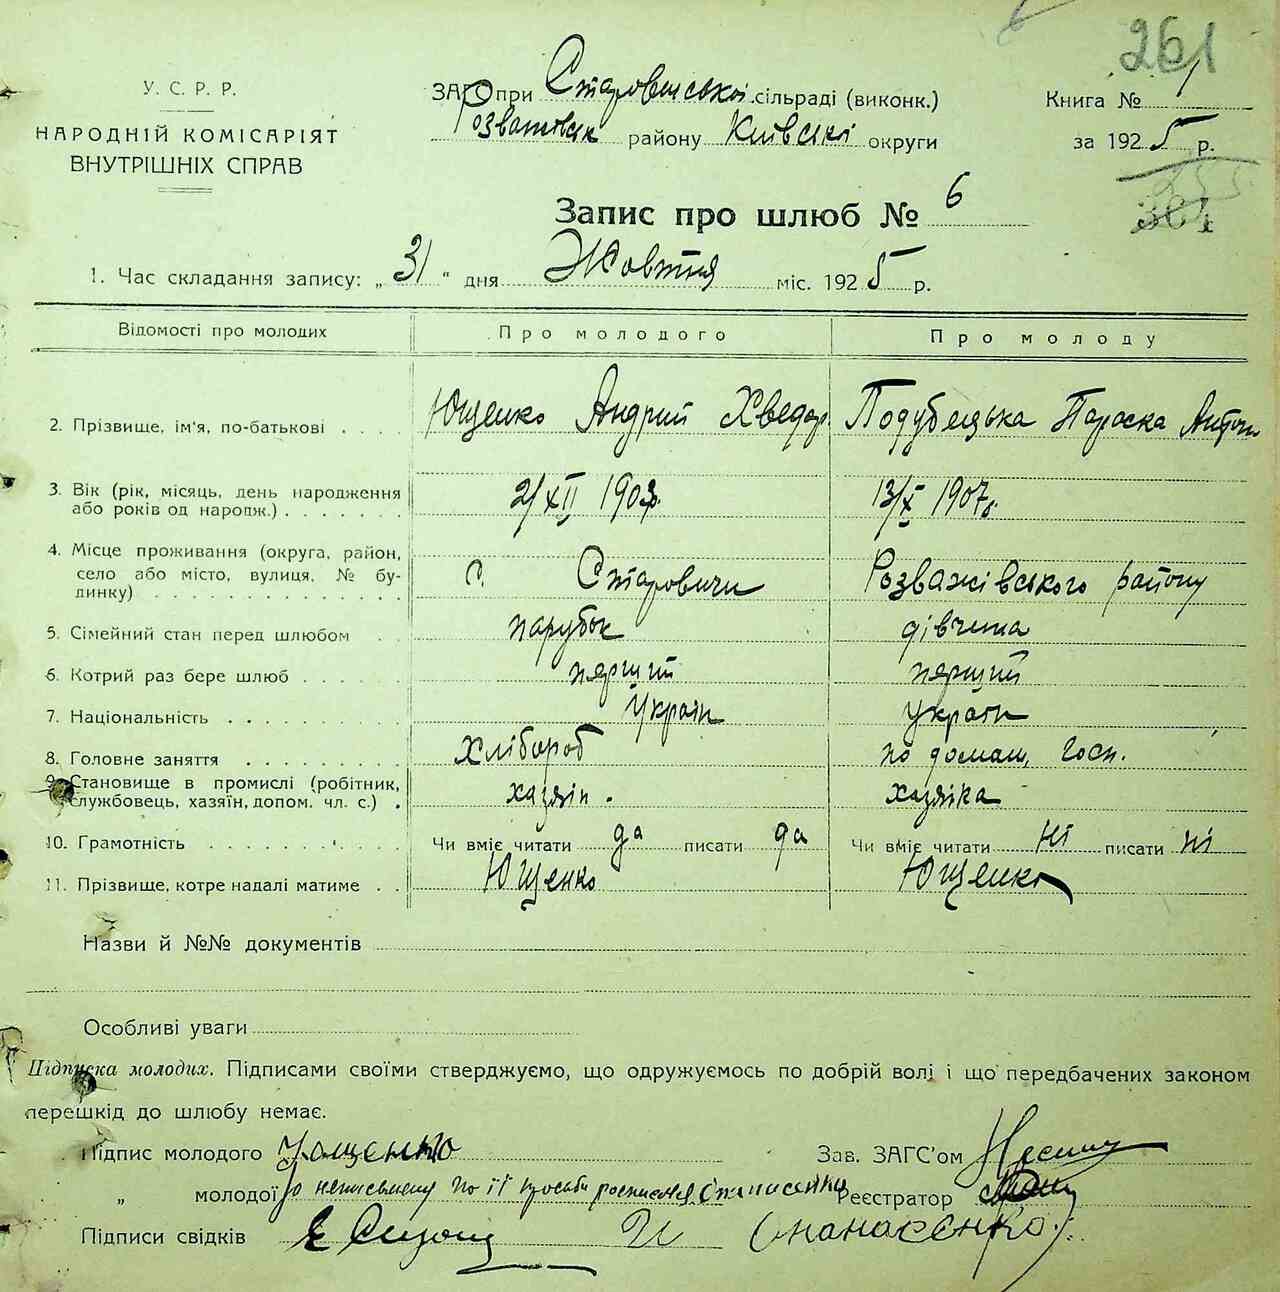 261
У. С. Р. Р.
НАРОДНІЙ КОМІСАРІЯТ
ВНУТРІШНІХ СПРАВ
ЗАГС при Старовиської сільраді (виконк.)
Розважівськ району Київські округи
Книга № 1
за 1925 р.
Запис про шлюб № 6
1. Час складання запису: „ 31 " дня Жовтня міс. 1925 р.
Відомості про молодих Про молодого Про молоду
2. Прізвище, ім'я, по-батькові Ющенко Андрий Хведор. Подубецька Параска Антон
3. Вік (рік, місяць, день народження 2/XII 1903. 13/X 1907г.
або років од народж.)
4. Місце проживання (округа, район,
село або місто, вулиця, № бу- С. Старовичи Розважівського району
динку)
5. Сімейний стан перед шлюбом парубок дівчина
6. Котрий раз бере шлюб перший перший
7. Національність Україн україн
8. Головне заняття Хлібороб по домаш. Госп.
9. Становище в промислі (робітник,
службовець, хазяїн, допом. чл. с.) хазяін. хазяіка
10. Грамотність Чи вміє читати да писати да Чи вміє читати ні писати ні
11. Прізвище, котре надалі матиме Ющенко Ющенко
Назви й №№ документів
Особливі уваги
Підписка молодих. Підписами своїми стверджуємо, що одружуємось по добрій волі і що передбачених законом
перешкід до шлюбу немає.
Підпис молодого Ющенко Зав. ЗАГС'ом
„ молодої за неписьмену по її просьби росписался Опанасенко Реєстратор
Підписи свідків И Опанасенко